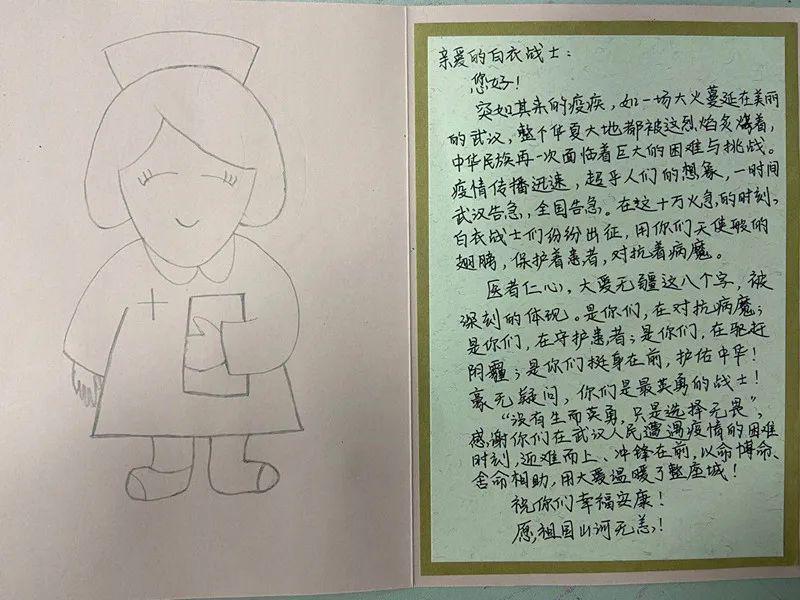 亲爱的白衣战士：
您好！
突如其来的疫疾，如一场大火蔓延在美丽
的武汉，整个华夏大地都被这烈焰炙烤着，
中华民族再一次面临着巨大的困难与挑战。
疫情传播迅速，超乎人们的想象，一时间
武汉告急，全国告急。在这十万火急的时刻，
白衣战士们纷纷出征，用你们天使般的
翅膀，保护着患者，对抗着病魔。
医者仁心，大爱无疆这八个字，被
深刻的体现。是你们，在对抗病魔；
是你们，在守护患者；是你们，在驱赶
阴霾；是你们挺身在前，护佑中华！
毫无疑问，你们是最英勇的战士！
“没有生而英勇，只是选择无畏”，
感谢你们在武汉人民遭遇疫情的困难
时刻，迎难而上、冲锋在前，以命博命、
舍命相助，用大爱温暖了整座城！
祝你们幸福安康！
愿，祖国山河无恙！